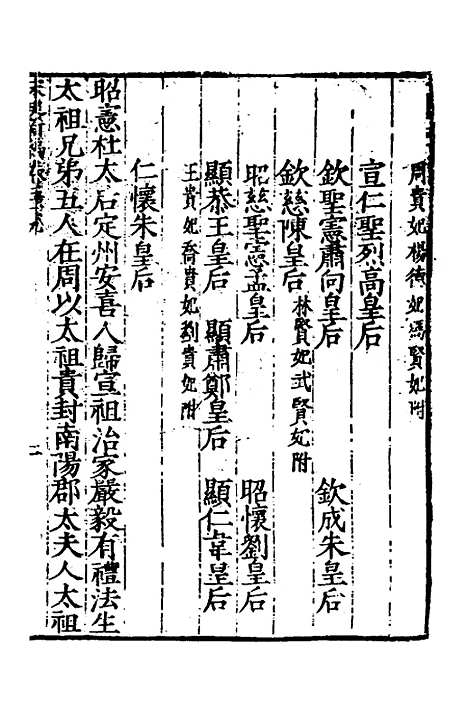 周貴妃楊德妃馮賢妃附
宣仁聖烈高皇后
欽聖憲肅向皇后 欽成朱皇后
欽慈陳皇后 林賢妃武賢妃附
昭慈聖憲孟皇后 昭懷劉皇后
顯恭王皇后 顯肅鄭皇后 顯仁韋皇后
王貴妃喬貴妃劉貴妃附
仁懷朱皇后
昭憲杜太后定州安喜人歸宣祖治家嚴毅有禮法生
太祖兄弟五人在周以太祖貴封南陽郡太夫人太祖
二